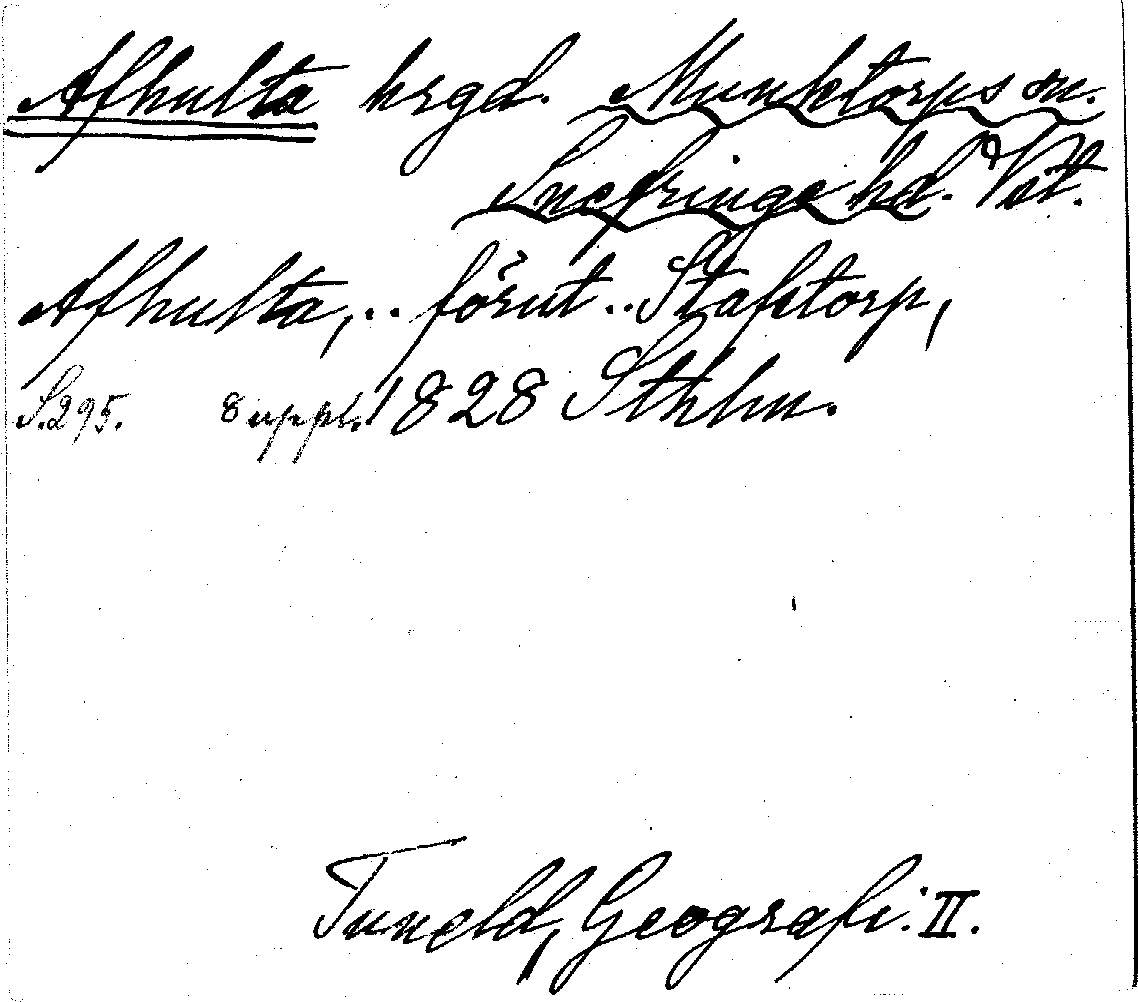 Afhulta hrgd. Munktorps sn.
Snefringe hd. Vst.
Afhulta,.. förut .. Staftorp,
S.295. 8 uppl. 1828 Sthlm.
Tuneld, Geografi. II.